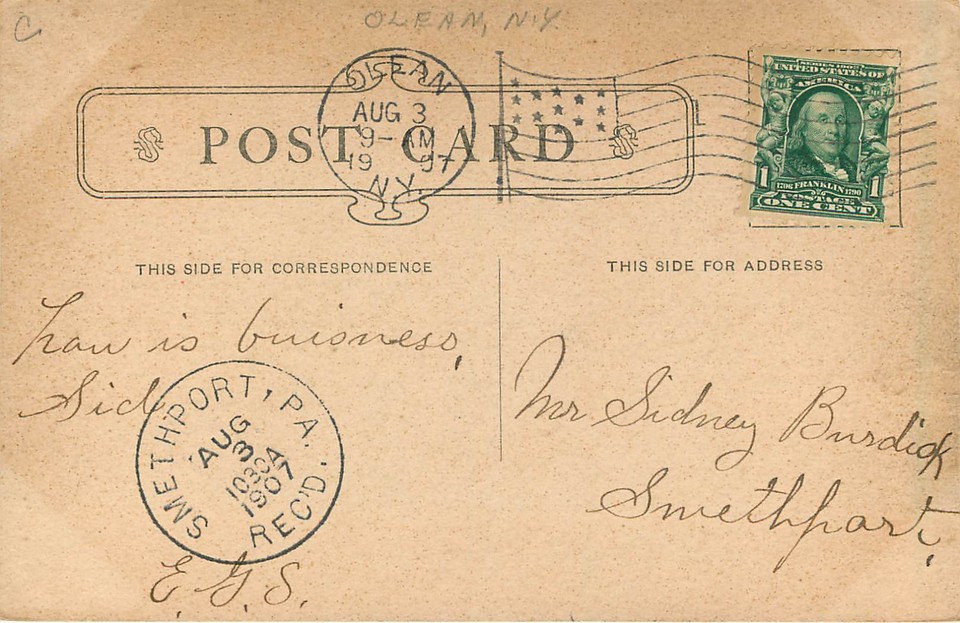 C
OLEAN, N.Y.
OLEAN
AUG 3
9-AM
1907
N.Y.
POST CARD
SERIES 1902
UNITED STATES OF
AMERICA
1706 FRANKLIN 1790
POSTAGE
1 ONE CENT 1
THIS SIDE FOR CORRESPONDENCE
THIS SIDE FOR ADDRESS
how is buisness,
Sid
SMETHPORT, PA.
AUG
3
1030A
1907
REC'D.
E.G.S.
Mr Sidney Burdick
Smethport,